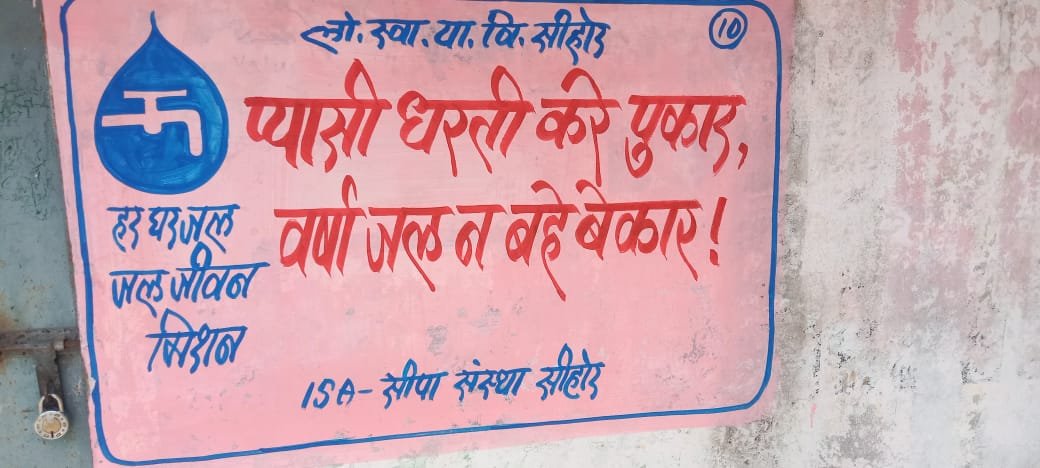 लो. स्वा. या. वि. सीहोर
10
प्यासी धरती करे पुकार,
वर्षा जल न बहे बेकार!
हर घर जल
जल जीवन
मिशन
ISA - सीपा संस्था सीहोर